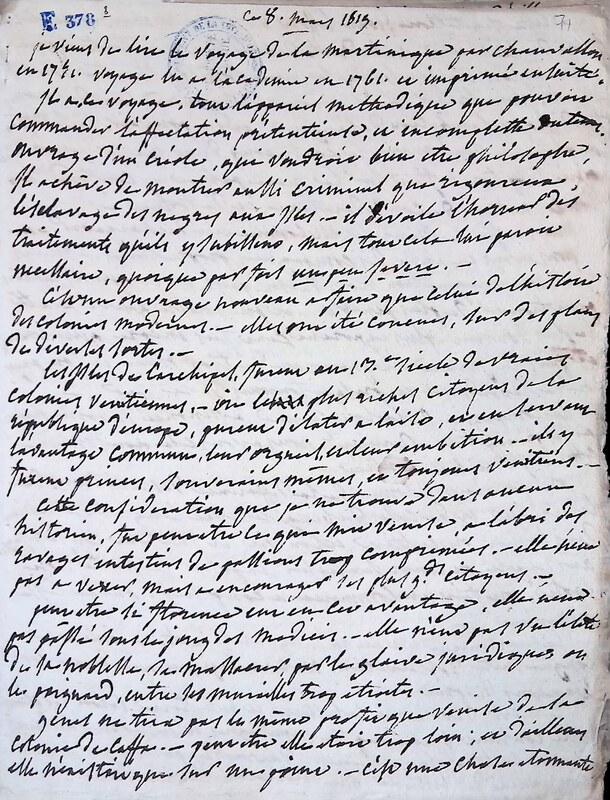 F. 378
ce 8. mars 1819.
je viens de lire le voyage de la martinique par chanvallon
en 1751. voyage lu a l'académie en 1761. et imprimé ensuite.
Il a, ce voyage, tout l'appareil méthodique que pouvoit
commander l'affectation prétentieuse, et incomplette
ouvrage d'un créole, qui voudroit bien etre philosophe,
Il achève de montrer aussi criminel que rigoureux
l'esclavage des negres aux Isles. - il dévoile l'horreur des
traitements qu'ils y subissent, mais tout cela lui paroit
necessaire, quoique par fois un peu severe. -
C'est un ouvrage nouveau a faire que celui de l'histoire
des colonies modernes. - elles ont été concues, sur des plans
de diverses sortes. -
les Isles de l'archipel, furent au 13.e siecle de vraies
colonies venitiennes. - les plus riches citoyens de la
république purent dilater a l'aise, et en servant
l'avantage commun, leur orgueil, et leur ambition. - ils y
furent princes, souverains mêmes, et toujours venitiens. -
cette consideration que je ne trouve dans aucun
historien, fut peut etre ce qui mit venise, a l'abri des
ravages intestins de passions trop comprimées. - elle n'eut
pas a vexer, mais a encourager ses plus gds citoyens. -
peut etre si florence eut eu cet avantage, elle n'eut
pas passé sous le joug des medicis. - elle n'eut pas vu l'élite
de sa noblesse, se massacrer par le glaive juridique ou
le poignard, entre ses murailles trop étroites. -
genes ne tira pas le même profit que venise de la
colonie de caffa. - peut etre elle etoit trop loin; et d'ailleurs
elle n'existoit que sur un point. - c'est une chose étonnante